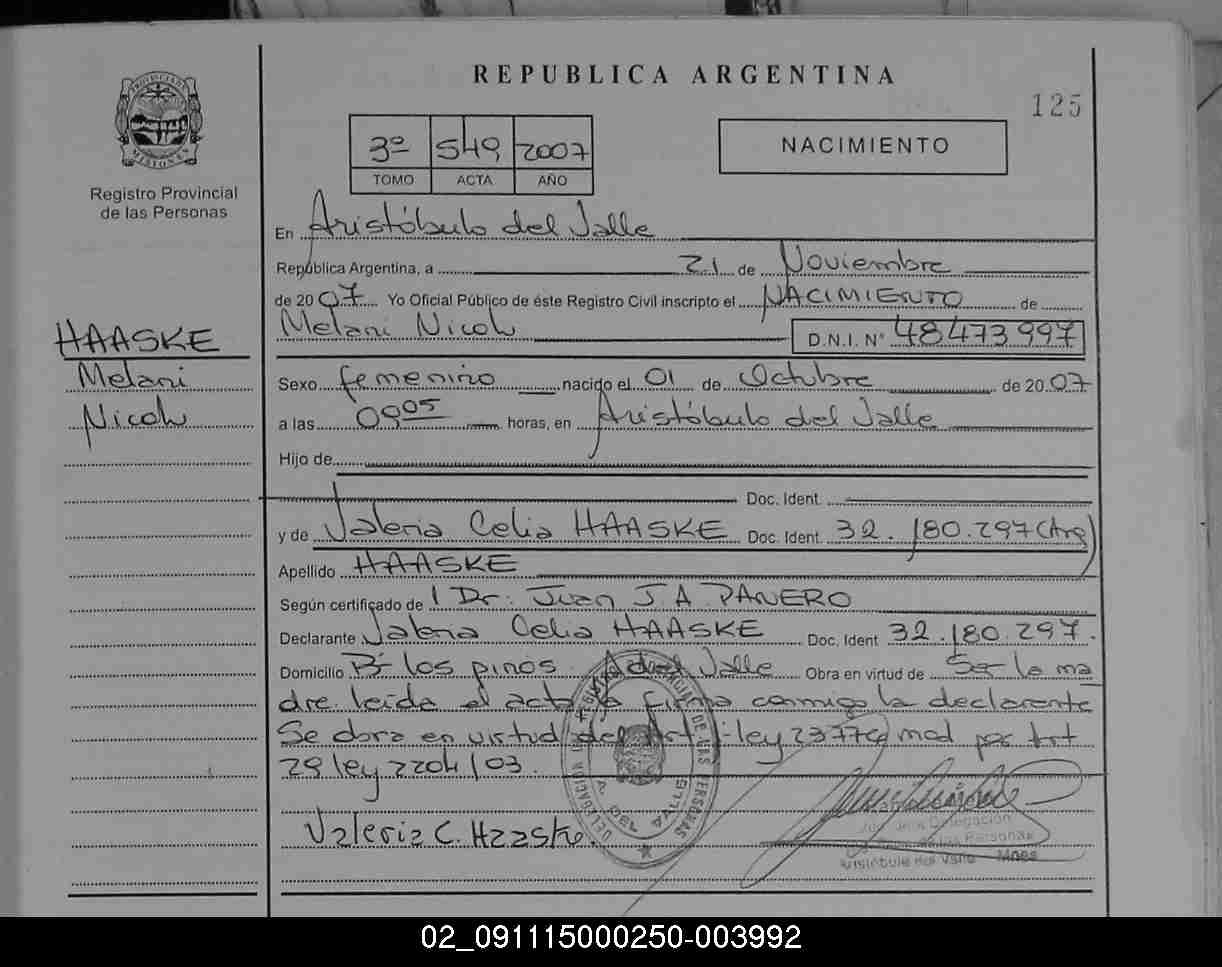 REPUBLICA ARGENTINA
125
PROVINCIA DE MISIONES
Registro Provincial
de las Personas
3º 549 2007
TOMO ACTA AÑO
NACIMIENTO
En Aristóbulo del Valle
República Argentina, a 21 de Noviembre
de 2007 Yo Oficial Público de éste Registro Civil inscripto el NACIMIENTO de
Melani Nicole
D.N.I. Nº 48473997
HAASKE
Melani
Nicole
Sexo femenino nacido el 01 de Octubre de 2007
a las 09,05 horas, en Aristóbulo del Valle
Hijo de
Doc. Ident.
y de Valeria Celia HAASKE Doc. Ident. 32.180.297 (Arg)
Apellido HAASKE
Según certificado de Dr: Juan J.A. PANERO
Declarante Valeria Celia HAASKE Doc. Ident 32.180.297.
Domicilio Bº los pinos A del Valle Obra en virtud de Ser la ma
dre leída el acta la firma conmigo la declarente
Se obra en virtud del Art ley 23776 mod por Art
29 ley 2204/03.
Valeria C. Haaske.
DELEGACION PROVINCIAL DE LAS PERSONAS
A. DEL VALLE
Delegación
de las Personas
Aristóbulo del Valle Mnes
02_091115000250-003992